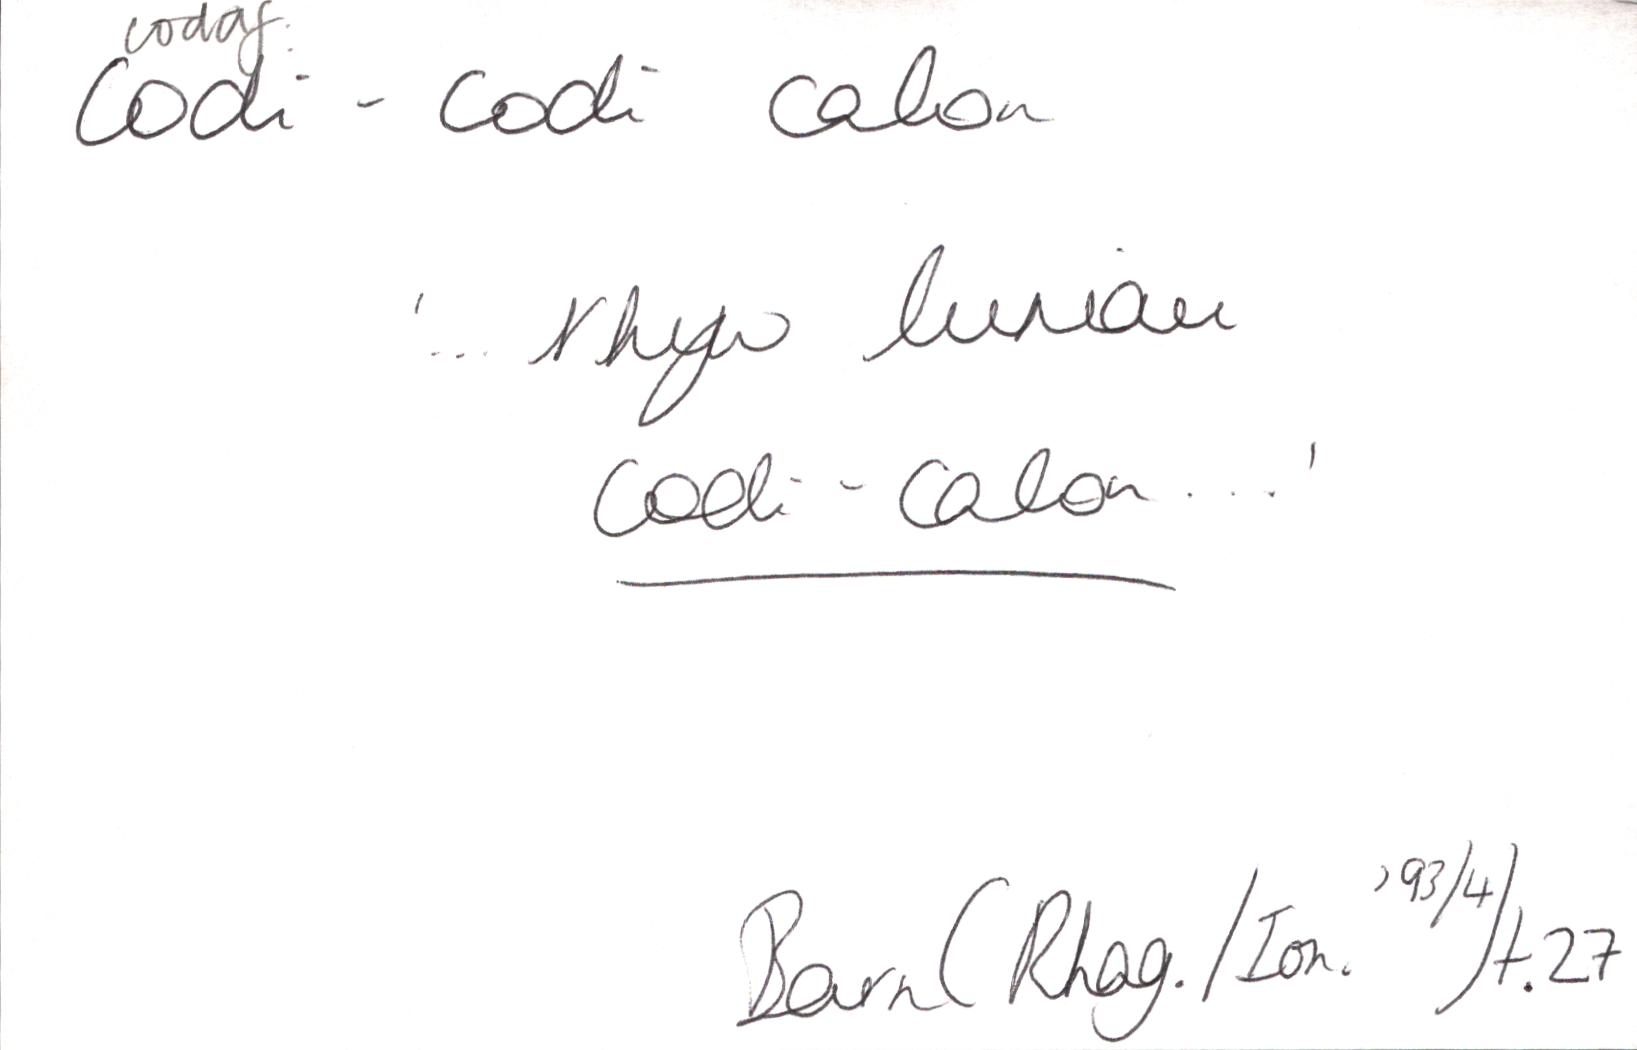 codaf:
Codi - codi calon
'... rhyw luniau
codi-calon ....'
Barn (Rhag./Ion. '93/4) t.27